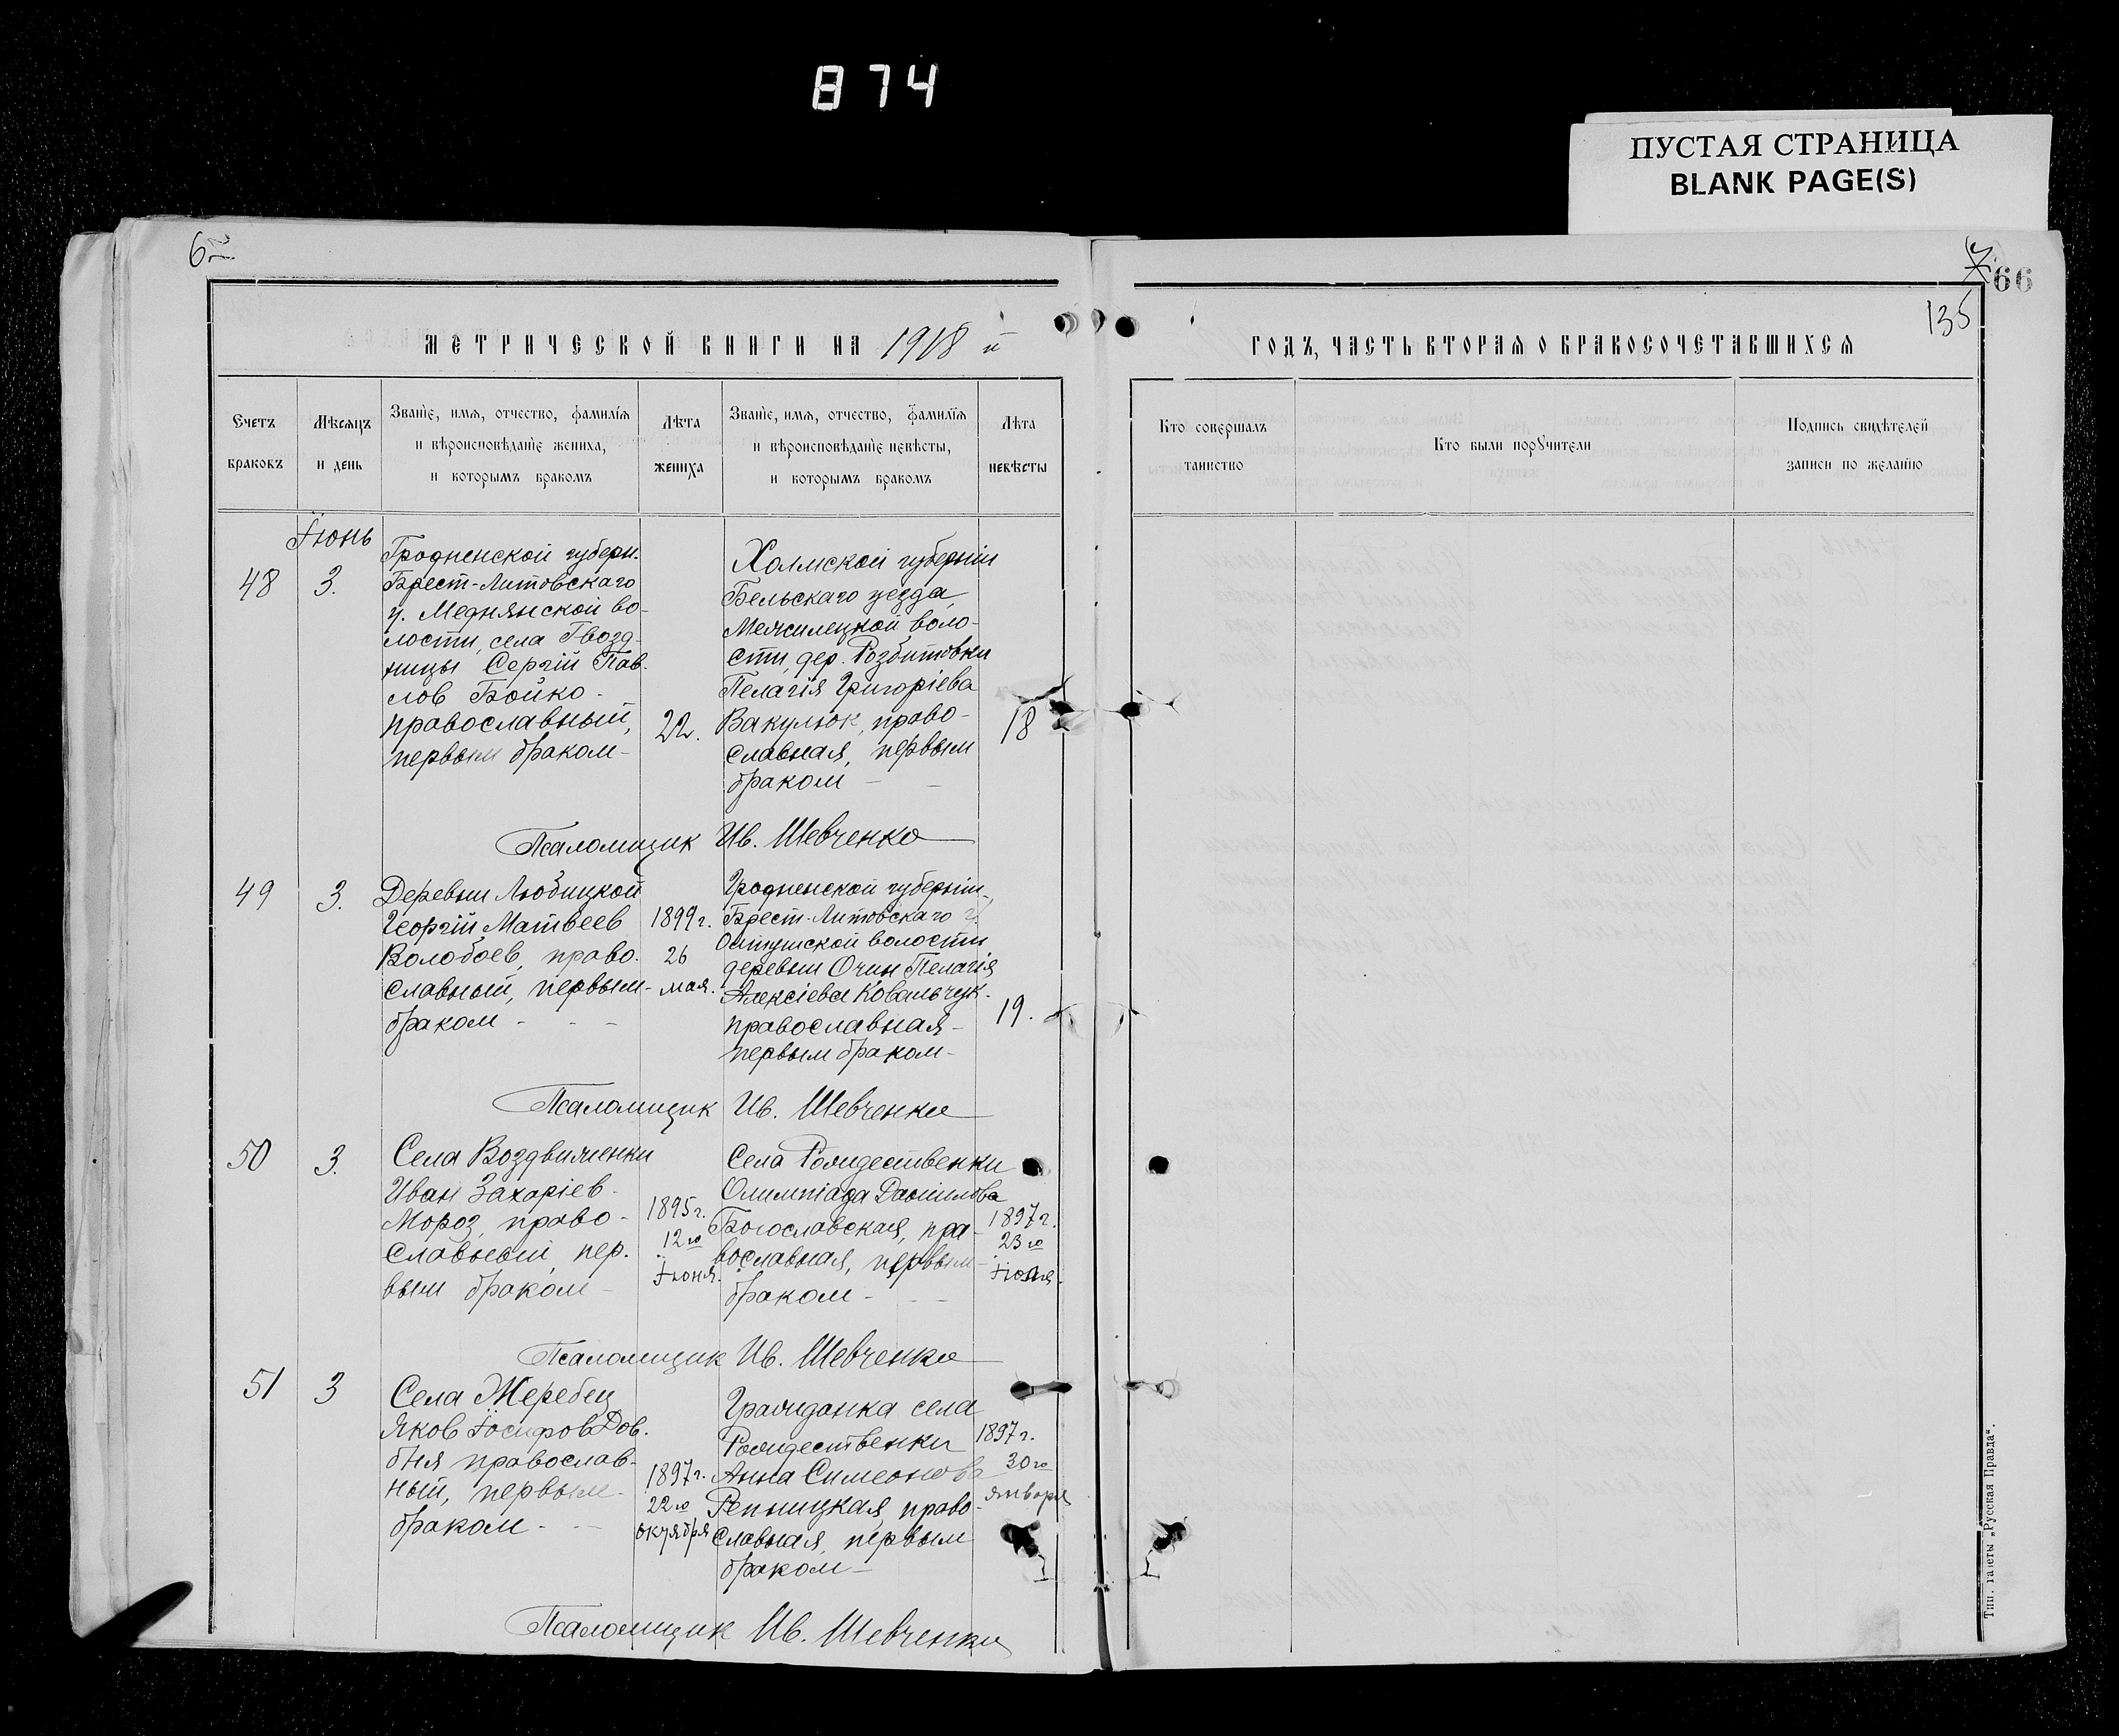 874
ПУСТАЯ СТРАНИЦА
BLANK PAGE(S)
6
7
66
135
МЕТРИЧЕСКОЙ КНИГИ НА 1918 й
ГОДЪ, ЧАСТЬ ВТОРАЯ О БРАКОСОЧЕТАВШИХСЯ
Счетъ браковъ
Мѣсяцъ и день
Званїе, имя, отчество, фамилїя и вѣроисповѣданїе жениха, и которымъ бракомъ
Лѣта жениха
Званїе, имя, отчество, фамилїя и вѣроисповѣданїе невѣсты, и которымъ бракомъ
Лѣта невѣсты
Кто совершалъ таинство
Кто были порꙋчители
Подпись свидѣтелей записи по желанїю
Іюнь
48
3.
Гродненской губерн.
Брест-Литовскаго
у. Меднянской во-
лости, села Гвозд-
ницы Сергій Пав-
лов Бойко -
православный,
первым браком -
22.
Холмской губерніи
Бельскаго уезда,
Межилецкой воло-
сти, дер. Розбитовки
Пелагія Григоріева
Вакулюк, право-
славная, первым
браком -
18
Псаломщик Ив. Шевченко
49
3.
Деревни Любицкой
Георгій Матвеев
Волобоев, право-
славный, первым-
браком -
1899 г.
26
мая.
Гродненской губерніи,
Брест-Литовскаго у.
Олтушской волости
деревни Очин Пелагія
Алексіева Ковальчук.
православная -
первым браком -
19.
Псаломщик Ив. Шевченко
50
3.
Села Воздвиженки
Иван Захаріев -
Мороз, право-
славный, пер-
вым браком -
1895 г.
12 го
Іюня.
Села Рождественки
Олимпіада Даніилова
Богославская, пра-
вославная, первым-
браком -
1897 г.
23 го
Іюля.
Псаломщик Ив. Шевченко
51
3
Села Жеребец
Яков Іосифов Дов.
бня православ-
ный, первым -
браком -
1897 г.
22 го
октября
Гражданка села
Рождественки
Анна Симеонова
Репницкая, право-
славная, первым
браком -
1897 г.
30 го
января
Псаломщик Ив. Шевченко
Тип. газеты „Русская Правда“.